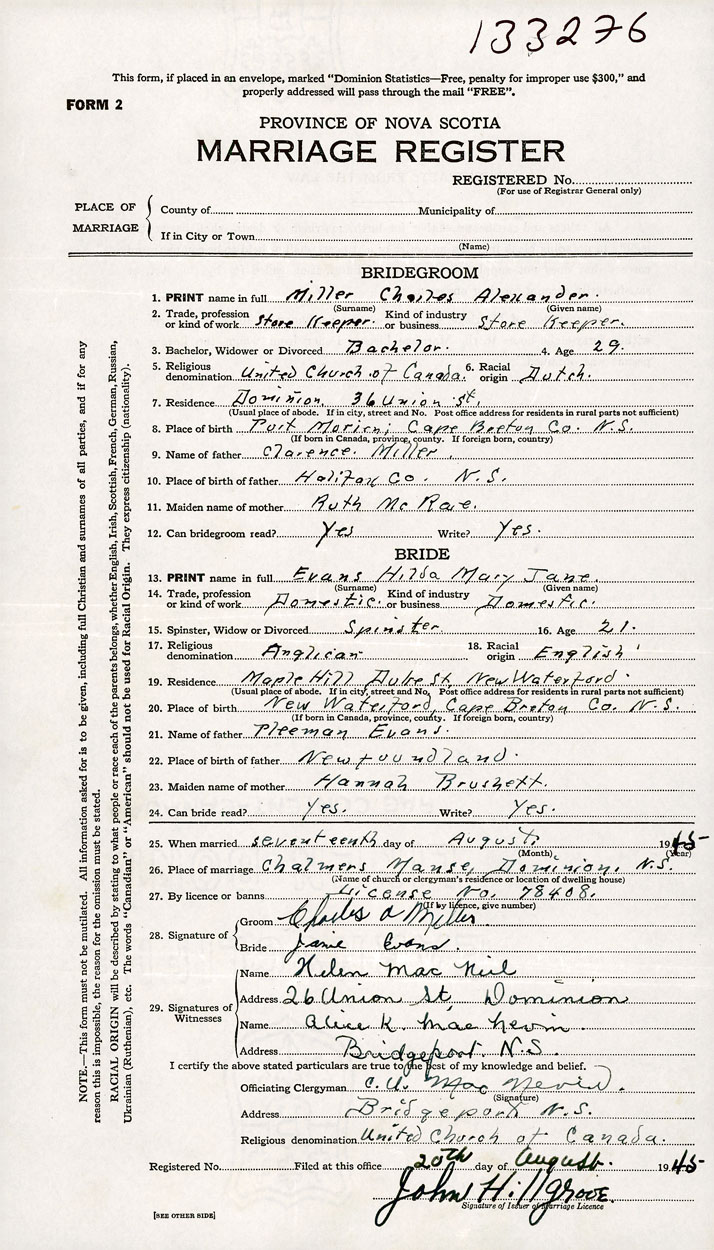 133276
This form, if placed in an envelope, marked “Dominion Statistics—Free, penalty for improper use $300,” and
properly addressed will pass through the mail “FREE”.
FORM 2
PROVINCE OF NOVA SCOTIA
MARRIAGE REGISTER
REGISTERED No.
(For use of Registrar General only)
PLACE OF MARRIAGE
County of Municipality of
If in City or Town
(Name)
BRIDEGROOM
1. PRINT name in full Miller Charles Alexander.
(Surname) (Given name)
2. Trade, profession or kind of work Store Keeper. Kind of industry or business Store Keeper.
3. Bachelor, Widower or Divorced Bachelor. 4. Age 29.
5. Religious denomination United Church of Canada. 6. Racial origin Dutch.
7. Residence Dominion, 36 Union St.
(Usual place of abode. If in city, street and No. Post office address for residents in rural parts not sufficient)
8. Place of birth Port Morien, Cape Breton Co. N.S.
(If born in Canada, province, county. If foreign born, country)
9. Name of father Clarence Miller.
10. Place of birth of father Halifax Co. N.S.
11. Maiden name of mother Ruth McRae.
12. Can bridegroom read? Yes Write? Yes.
BRIDE
13. PRINT name in full Evans Hilda Mary Jane.
(Surname) (Given name)
14. Trade, profession or kind of work Domestic. Kind of industry or business Domestic.
15. Spinster, Widow or Divorced Spinster. 16. Age 21.
17. Religious denomination Anglican 18. Racial origin English
19. Residence Maple Hill Duke St, New Waterford.
(Usual place of abode. If in city, street and No. Post office address for residents in rural parts not sufficient)
20. Place of birth New Waterford, Cape Breton Co. N.S.
(If born in Canada, province, county. If foreign born, country)
21. Name of father Pleeman Evans.
22. Place of birth of father Newfoundland.
23. Maiden name of mother Hannah Brushett.
24. Can bride read? Yes. Write? Yes.
25. When married seventeenth day of August, 1945
(Month) (Year)
26. Place of marriage Chalmers Manse, Dominion, N.S.
(Name of church or clergyman's residence or location of dwelling house)
27. By licence or banns License No. 78408.
(If by licence, give number)
28. Signature of
Groom Charles A Miller
Bride Jane Evans.
29. Signatures of Witnesses
Name Helen Mac Neil
Address 26 Union St Dominion
Name Alice K. MacNevin.
Address Bridgeport. N.S.
I certify the above stated particulars are true to the best of my knowledge and belief.
Officiating Clergyman MacNevin.
(Signature)
Address Bridgeport N.S.
Religious denomination United Church of Canada.
Registered No. Filed at this office 20th day of August. 1945
John Hillgrove.
Signature of Issuer of Marriage Licence
[SEE OTHER SIDE]
NOTE.—This form must not be mutilated. All information asked for is to be given, including full Christian and surnames of all parties, and if for any
reason this is impossible, the reason for the omission must be stated.
RACIAL ORIGIN will be described by stating to what people or race each of the parents belongs, whether English, Irish, Scottish, French, German, Russian,
Ukrainian (Ruthenian), etc. The words “Canadian” or “American” should not be used for Racial Origin. They express citizenship (nationality).